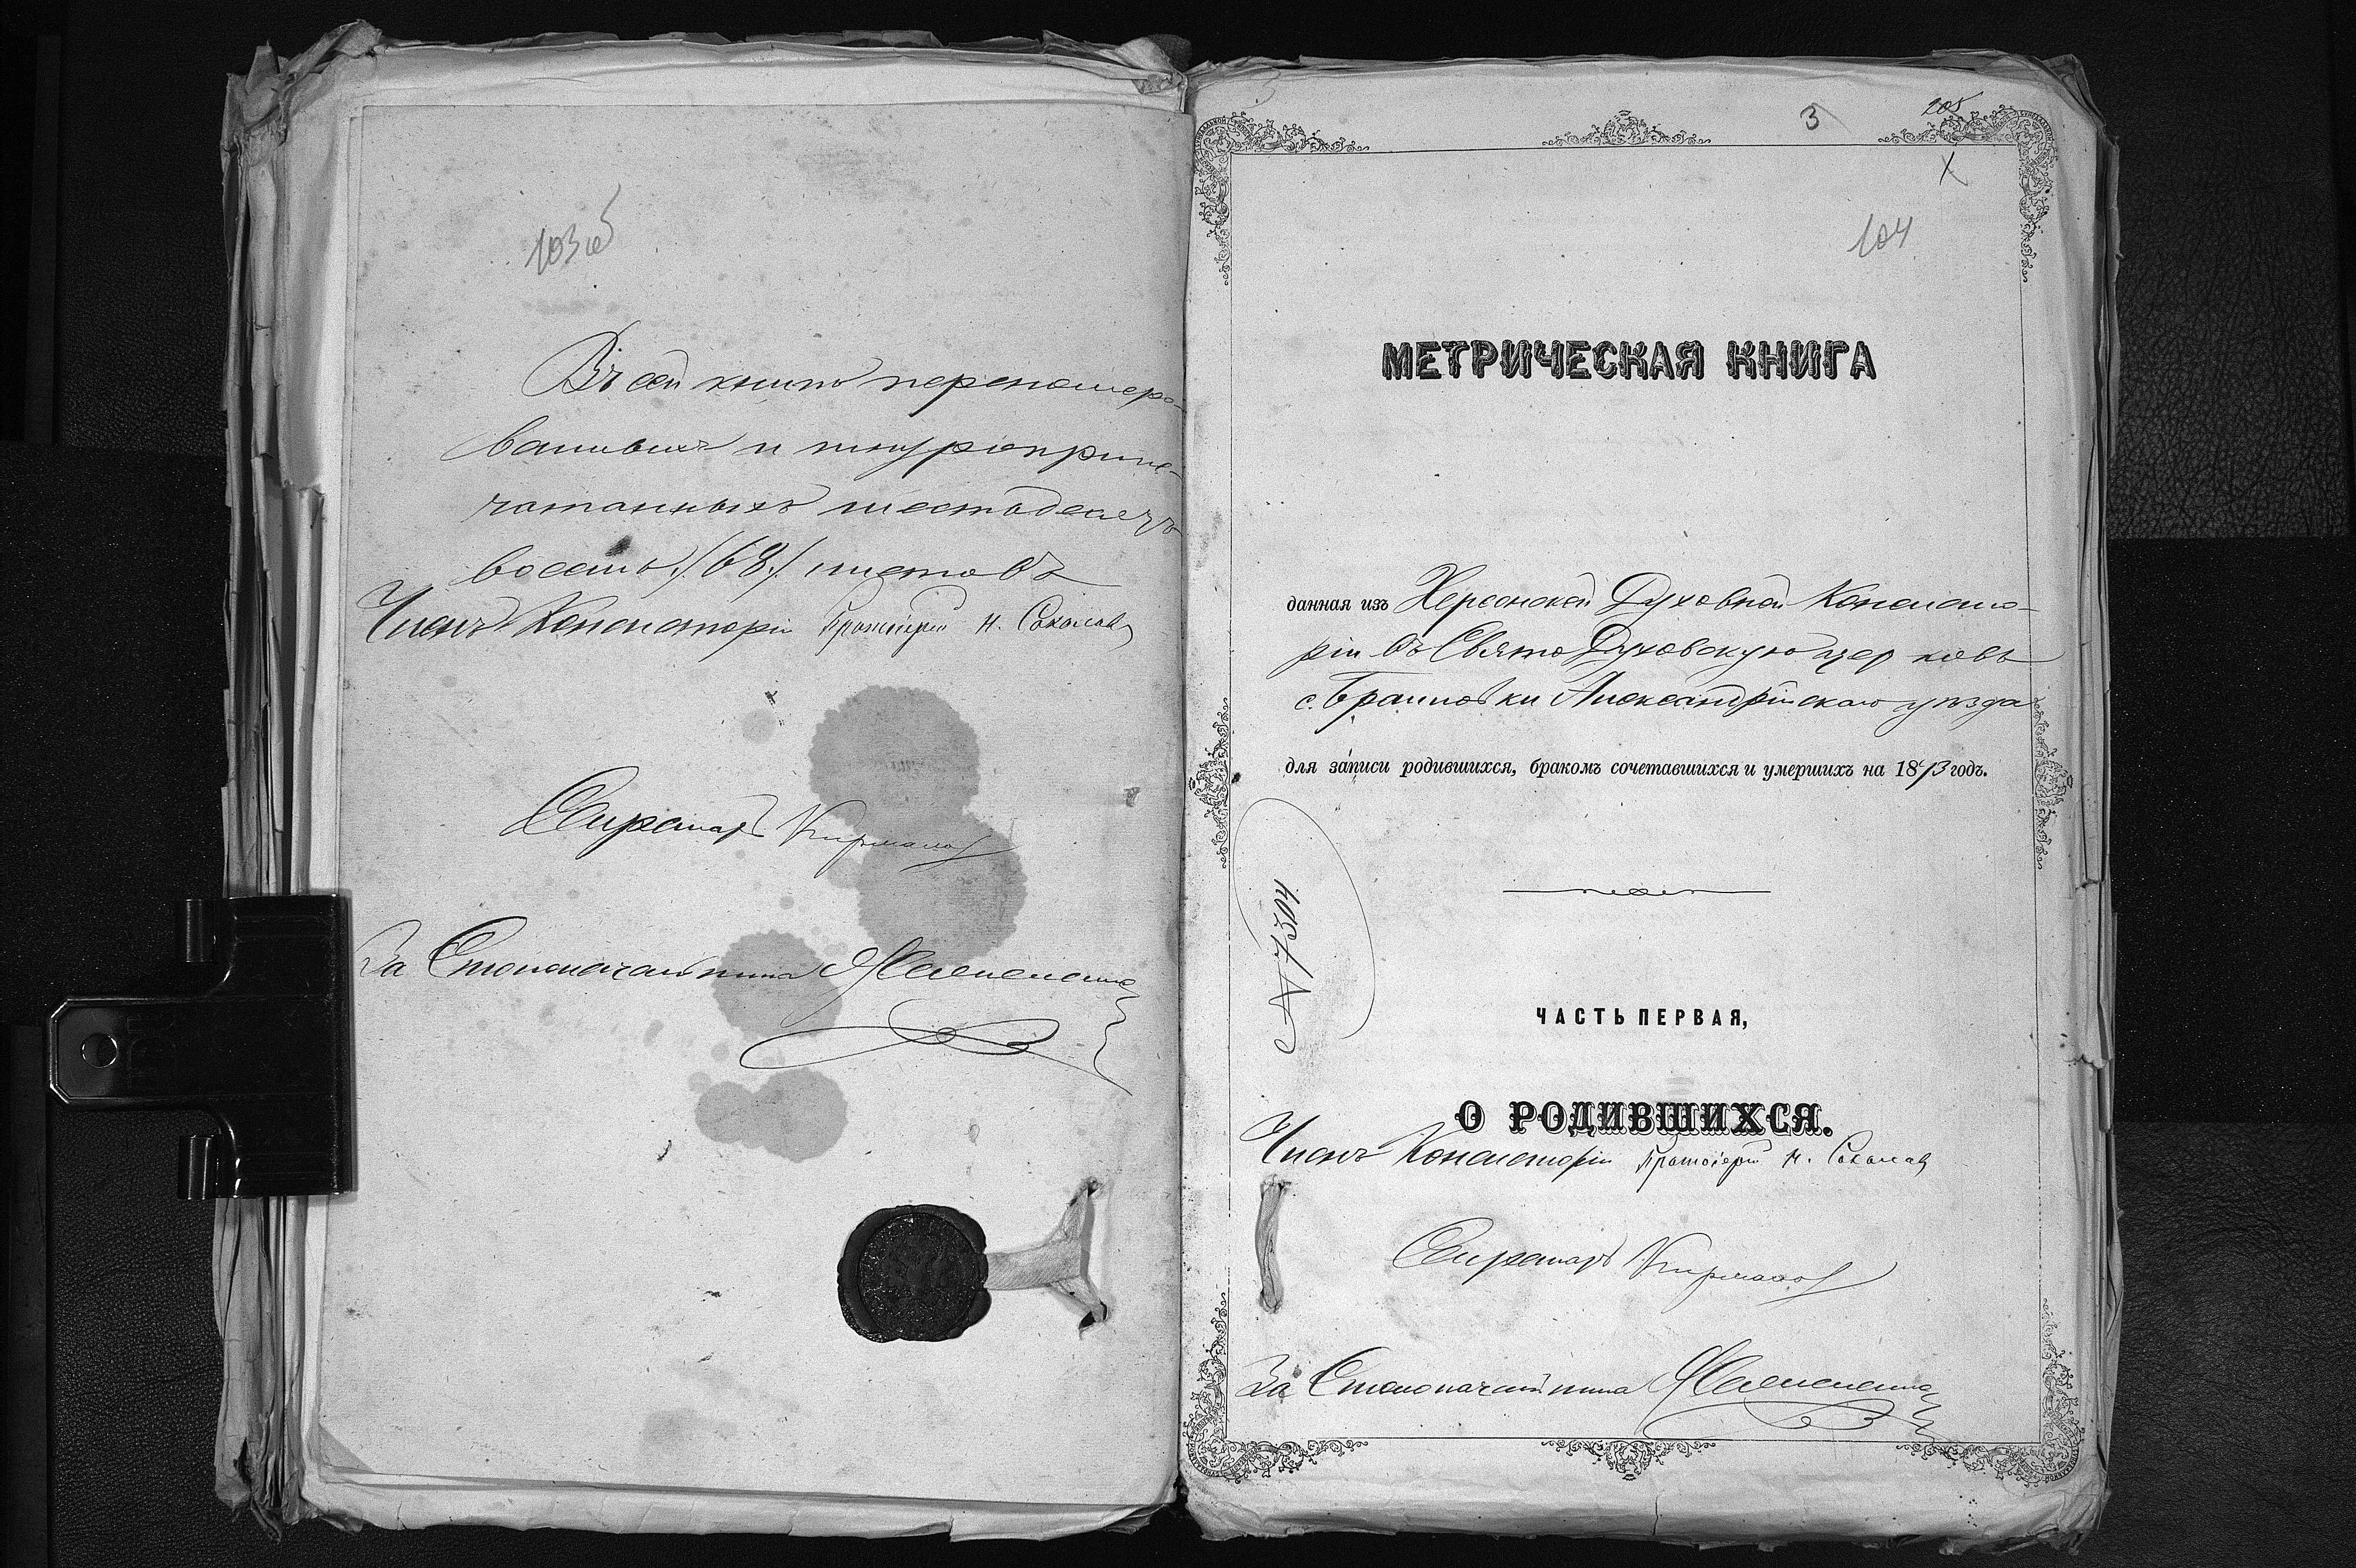 103 об
Въ сей книгѣ перенумеро-
ванныхъ и шнуроприпе-
чатанныхъ шестьдесятъ
восемь /68/ листовъ
Членъ Консисторіи Протоіерей Н. Соколовъ
Секретарь
За Столоначальника
3
205
104
МЕТРИЧЕСКАЯ КНИГА
данная изъ Херсонской Духовной Консисто-
ріи въ Свято Духовскую церковь
с. Александрійскаго уѣзда
для записи родившихся, бракомъ сочетавшихся и умершихъ на 1873 годъ.
№ 7304
ЧАСТЬ ПЕРВАЯ,
О РОДИВШИХСЯ.
Членъ Консисторіи Протоіерей Н. Соколовъ
Секретарь
За Столоначальника